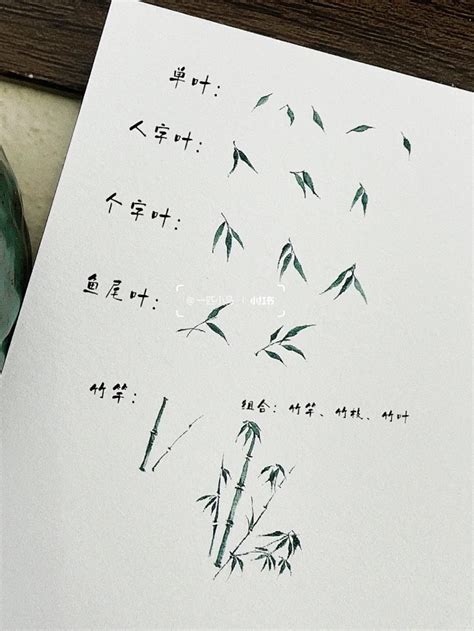 单叶：
人字叶：
个字叶：
鱼尾叶：
小红书
竹竿：
组合：竹竿、竹枝、竹叶